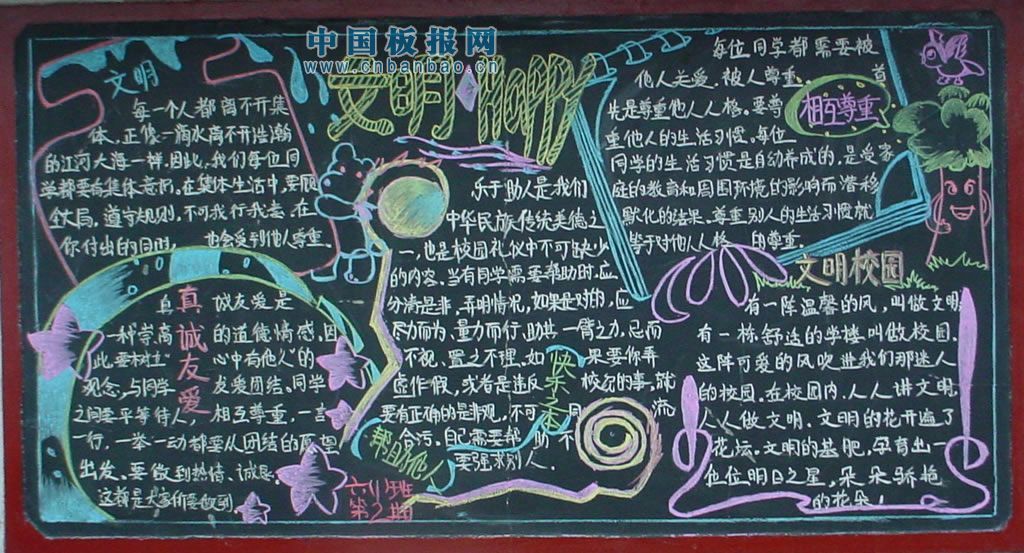 中国板报网
www.cnbanbao.cn
文明
文明
每一个人都离不开集
体,正像一滴水离不开浩瀚
的江河大海一样,因此,我们每位同
学都要有集体意识,在集体生活中,要顾
全大局,遵守规则,不可我行我素,在
你付出的同时,也会受到他人尊重。
真诚友爱
真诚友爱是
一种崇高的道德情感,因
此,要树立"心中有他人"的
观念,与同学友爱团结,同学
之间要平等待人,相互尊重,一言
一行,一举一动都要从团结的愿望
出发,要做到热情、诚恳。
这样是大家们要做到
六(1)班
第2期
乐于助人是我们
中华民族传统美德之
一,也是校园礼仪中不可缺少
的内容。当有同学需要帮助时,应
分清是非,弄明情况,如果是对的,应
尽力而为,量力而行,助其一臂之力,忌而
不视、置之不理,如果要你弄
虚作假,或者是违反校规的事,就
要有正确的是非观,不可同流
合污。自己需要帮助,不
要强求别人。
帮助他人
快乐之本
每位同学都需要被
他人关爱、被人尊重。首
先是尊重他人人格。要尊
重他人的生活习惯。每位
同学的生活习惯是自动养成的,是受家
庭的教育和周围环境的影响而潜移
默化的结果。尊重别人的生活习惯就
等于对他人人格的尊重。
相互尊重
文明校园
有一阵温馨的风,叫做文明,
有一栋舒适的学楼叫做校园。
这阵可爱的风吹进我们那迷人
的校园。在校园内,人人讲文明,
人人做文明。文明的花开遍了
花坛。文明的基肥,孕育出一
位位明日之星,朵朵骄艳
的花朵!